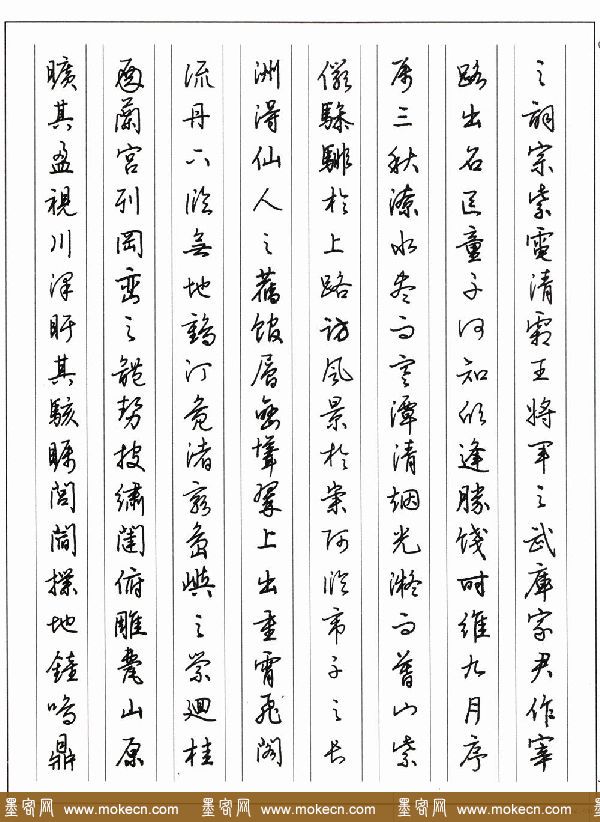 之詞宗紫電清霜王將軍之武庫家君作宰
路出名區童子何知躬逢勝餞時維九月序
屬三秋潦水盡而寒潭清烟光凝而暮山紫
儼驂騑於上路訪風景於崇阿臨帝子之長
洲得仙人之舊館層巒聳翠上出重霄飛閣
流丹下臨無地鶴汀鳧渚窮島嶼之縈廻桂
殿蘭宮列岡巒之體勢披繡闥俯雕甍山原
曠其盈視川澤盱其駭矚閭閻撲地鐘鳴鼎
墨客网 www.mokecn.com 墨客网 www.mokecn.com 墨客网 www.mokecn.com